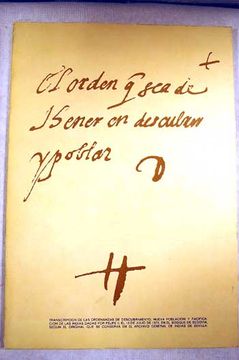 El orden q̃ se a de
thener en descubrir
y poblar
TRANSCRIPCION DE LAS ORDENANZAS DE DESCUBRIMIENTO, NUEVA POBLACION Y PACIFICA
CION DE LAS INDIAS DADAS POR FELIPE II, EL 13 DE JULIO DE 1573, EN EL BOSQUE DE SEGOVIA,
SEGUN EL ORIGINAL QUE SE CONSERVA EN EL ARCHIVO GENERAL DE INDIAS DE SEVILLA